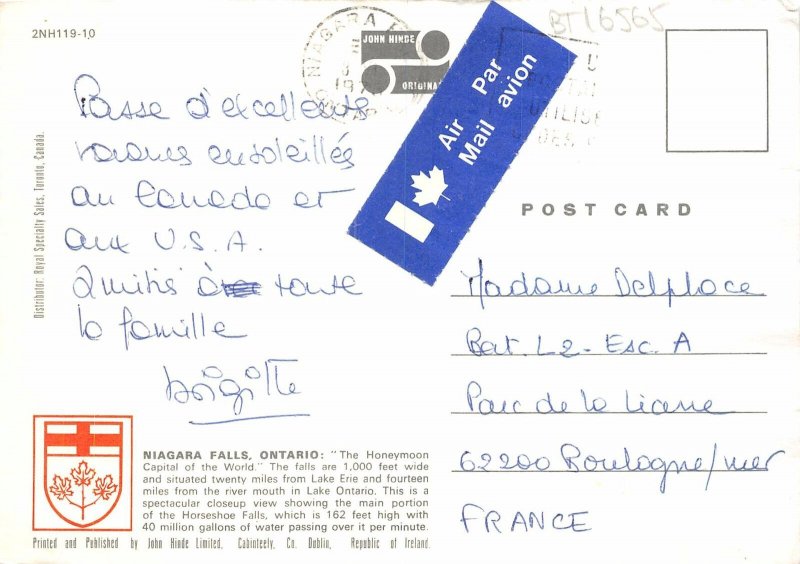 2NH119-10
BT16565
NIAGARA
197
JOHN HINDE
ORIGINAL
Air Par
Mail avion
UTILISE
Passe d'excellente
vacances ensoleillés
au Canada et
aux U.S.A.
Amitis à toute
la famille
Brigitte
POST CARD
Madame Delplace
Bat. L2 - Esc. A
Parc de la Liane
62200 Boulogne/mer
FRANCE
Distributor: Royal Specialty Sales, Toronto, Canada.
NIAGARA FALLS, ONTARIO: "The Honeymoon
Capital of the World." The falls are 1,000 feet wide
and situated twenty miles from Lake Erie and fourteen
miles from the river mouth in Lake Ontario. This is a
spectacular closeup view showing the main portion
of the Horseshoe Falls, which is 162 feet high with
40 million gallons of water passing over it per minute.
Printed and Published by John Hinde Limited, Cabinteely, Co. Dublin, Republic of Ireland.